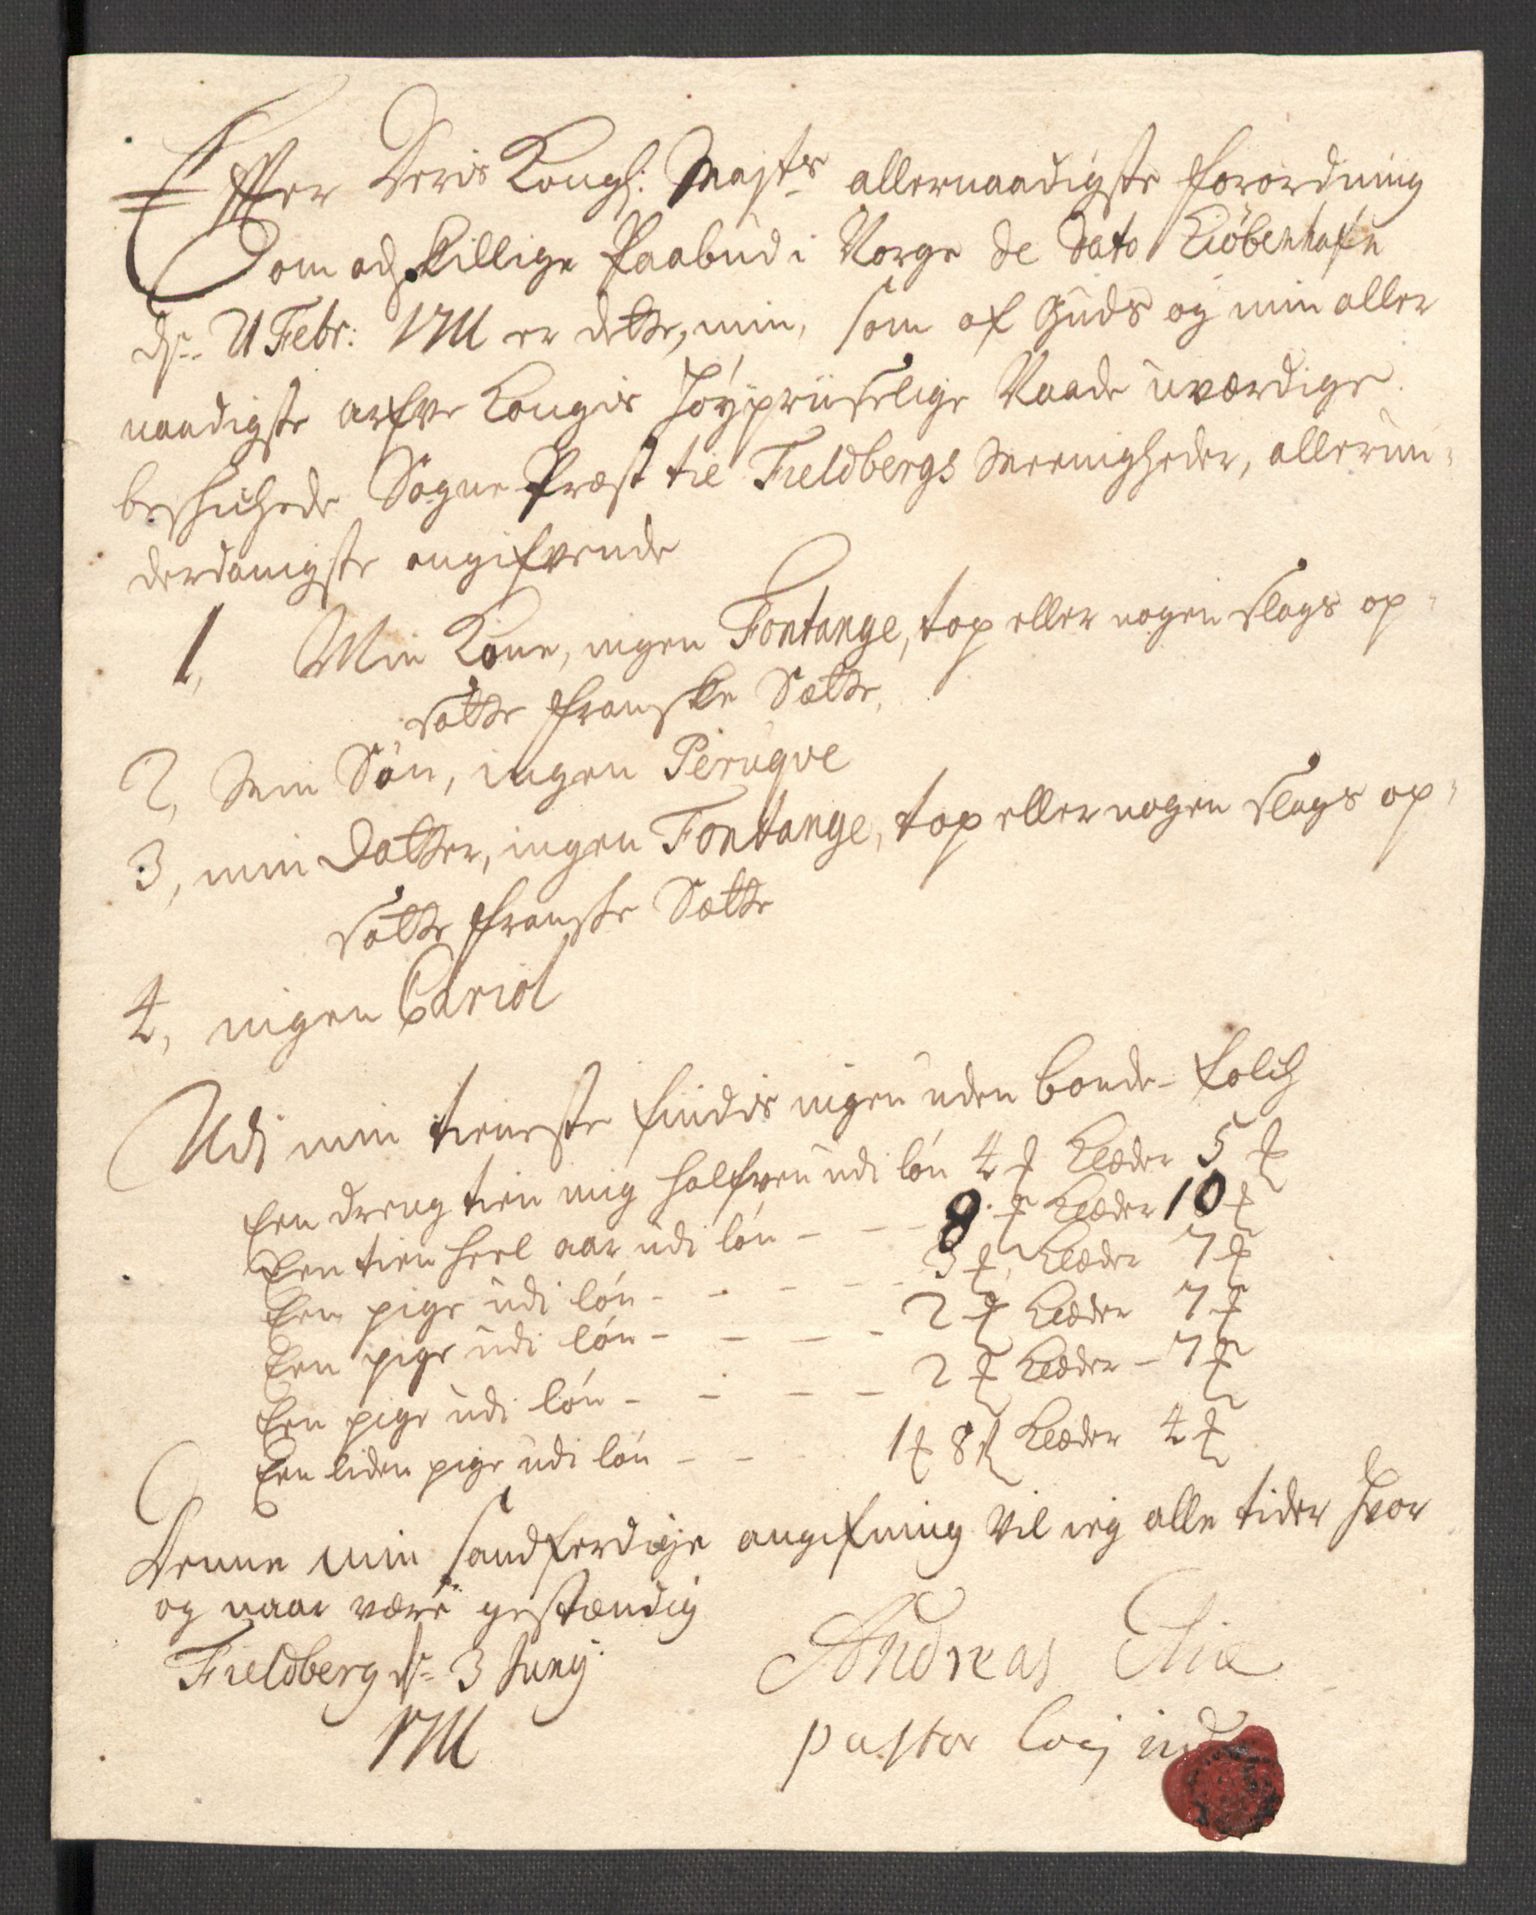 Effter Deris Kongl: Majts allernaadigste forordning
Om adskillige Paabud i Norge de dato Kiöbenhafn
dn. 21 Febr: 1711 er dette, min, som af Guds og min aller
naadigste arfve Kongis Høypriiselige Naade uværdige
beskichede Sogne Præst til Fieldbergs Meenigheder, allerun-
derdanigste angifvende
1, Min Kone, ingen Fontange, top eller nogen slags op-
satte franske Sætte,
2, Min Søn, ingen Perugve
3, min Datter, ingen Fontange, top eller nogen slags op-
satte franske Sætte
4, ingen Cariol
Udi min tieneste findis ingen uden bonde-folch
Een dreng tien mig halfven udi løn 4 Klæder 5
Een tien heel aar udi løn - - - 8 Klæder 10
Een pige udi løn - - - - - 3 Klæder 7
Een pige udi løn - - - - 2 Klæder 7
Een pige udi løn - - - - 2 Klæder - 7
Een liden pige udi løn - - - 1 8 Klæder 4
Denne min sandferdige angifning vil ieg alle tider hvor
og naar være gestændig
Fieldberg dn 3 Junij
1711
Andreas Eliæ
pastor loci